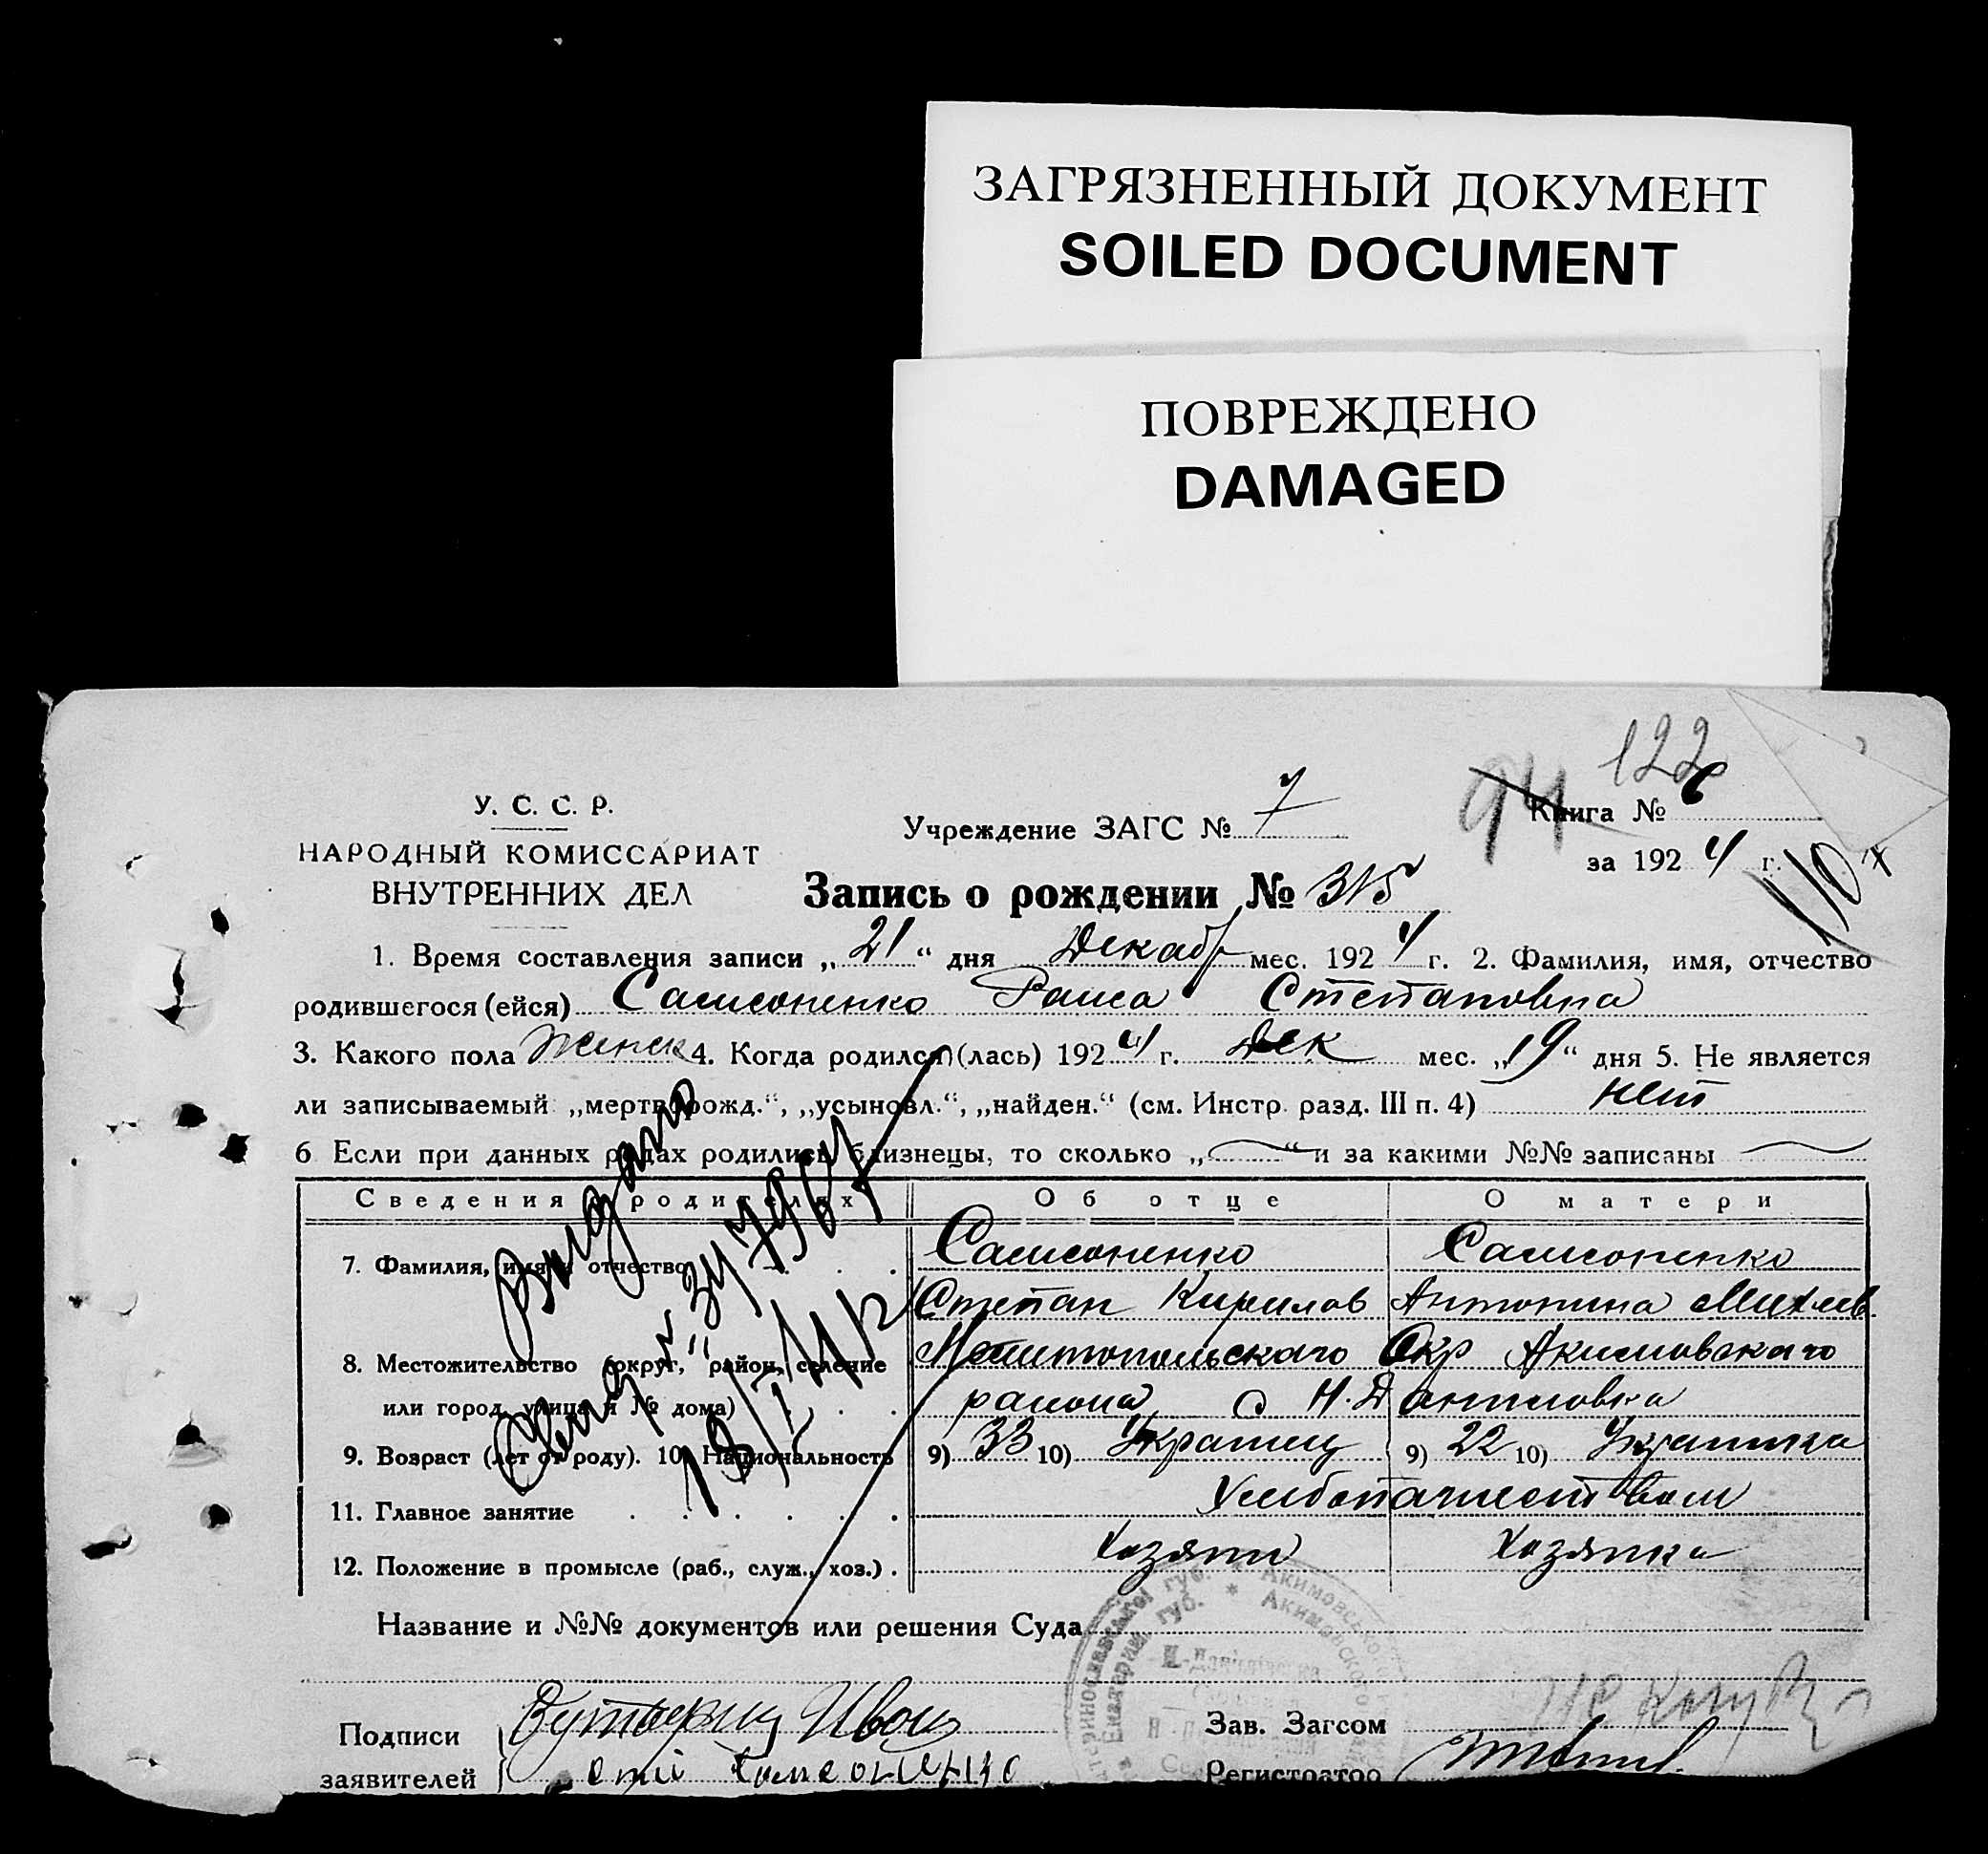 ЗАГРЯЗНЕННЫЙ ДОКУМЕНТ
SOILED DOCUMENT
ПОВРЕЖДЕНО
DAMAGED
122
94
У. С. С. Р.
НАРОДНЫЙ КОМИССАРИАТ
ВНУТРЕННИХ ДЕЛ
Учреждение ЗАГС № 7
Книга № 6
за 1924 г.
110
Запись о рождении № 315
1. Время составления записи „21“ дня Декабр мес. 1924 г. 2. Фамилия, имя, отчество
родившегося (ейся) Самсоненко Раиса Степановна
3. Какого пола женск 4. Когда родился (лась) 1924 г. Дек мес. „19“ дня 5. Не является
ли записываемый „мертворожд.“, „усыновл.“, „найден.“ (см. Инстр. разд. III п. 4) нет
6 Если при данных родах родились близнецы, то сколько „ “ и за какими №№ записаны
Сведения о родителях Об отце О матери
7. Фамилия, имя и отчество Самсоненко Самсоненко
Степан Кирилов Антонина Михаев.
8. Местожительство (округ, район, селение Мелитопольского Окр Акимовского
или город, улица и № дома) района, с Н. Даниловка
9. Возраст (лет от роду). 10. Национальность 9) 33 10) Украинец 9) 22 10) Украинка
11. Главное занятие Хлебопашеством
12. Положение в промысле (раб., служ., хоз.) . Хозяин Хозяйка
Выдано
Название и №№ документов или решения Суда
Подписи
заявителей
Иван
Самсоненко
Зав. Загсом
Регистратор